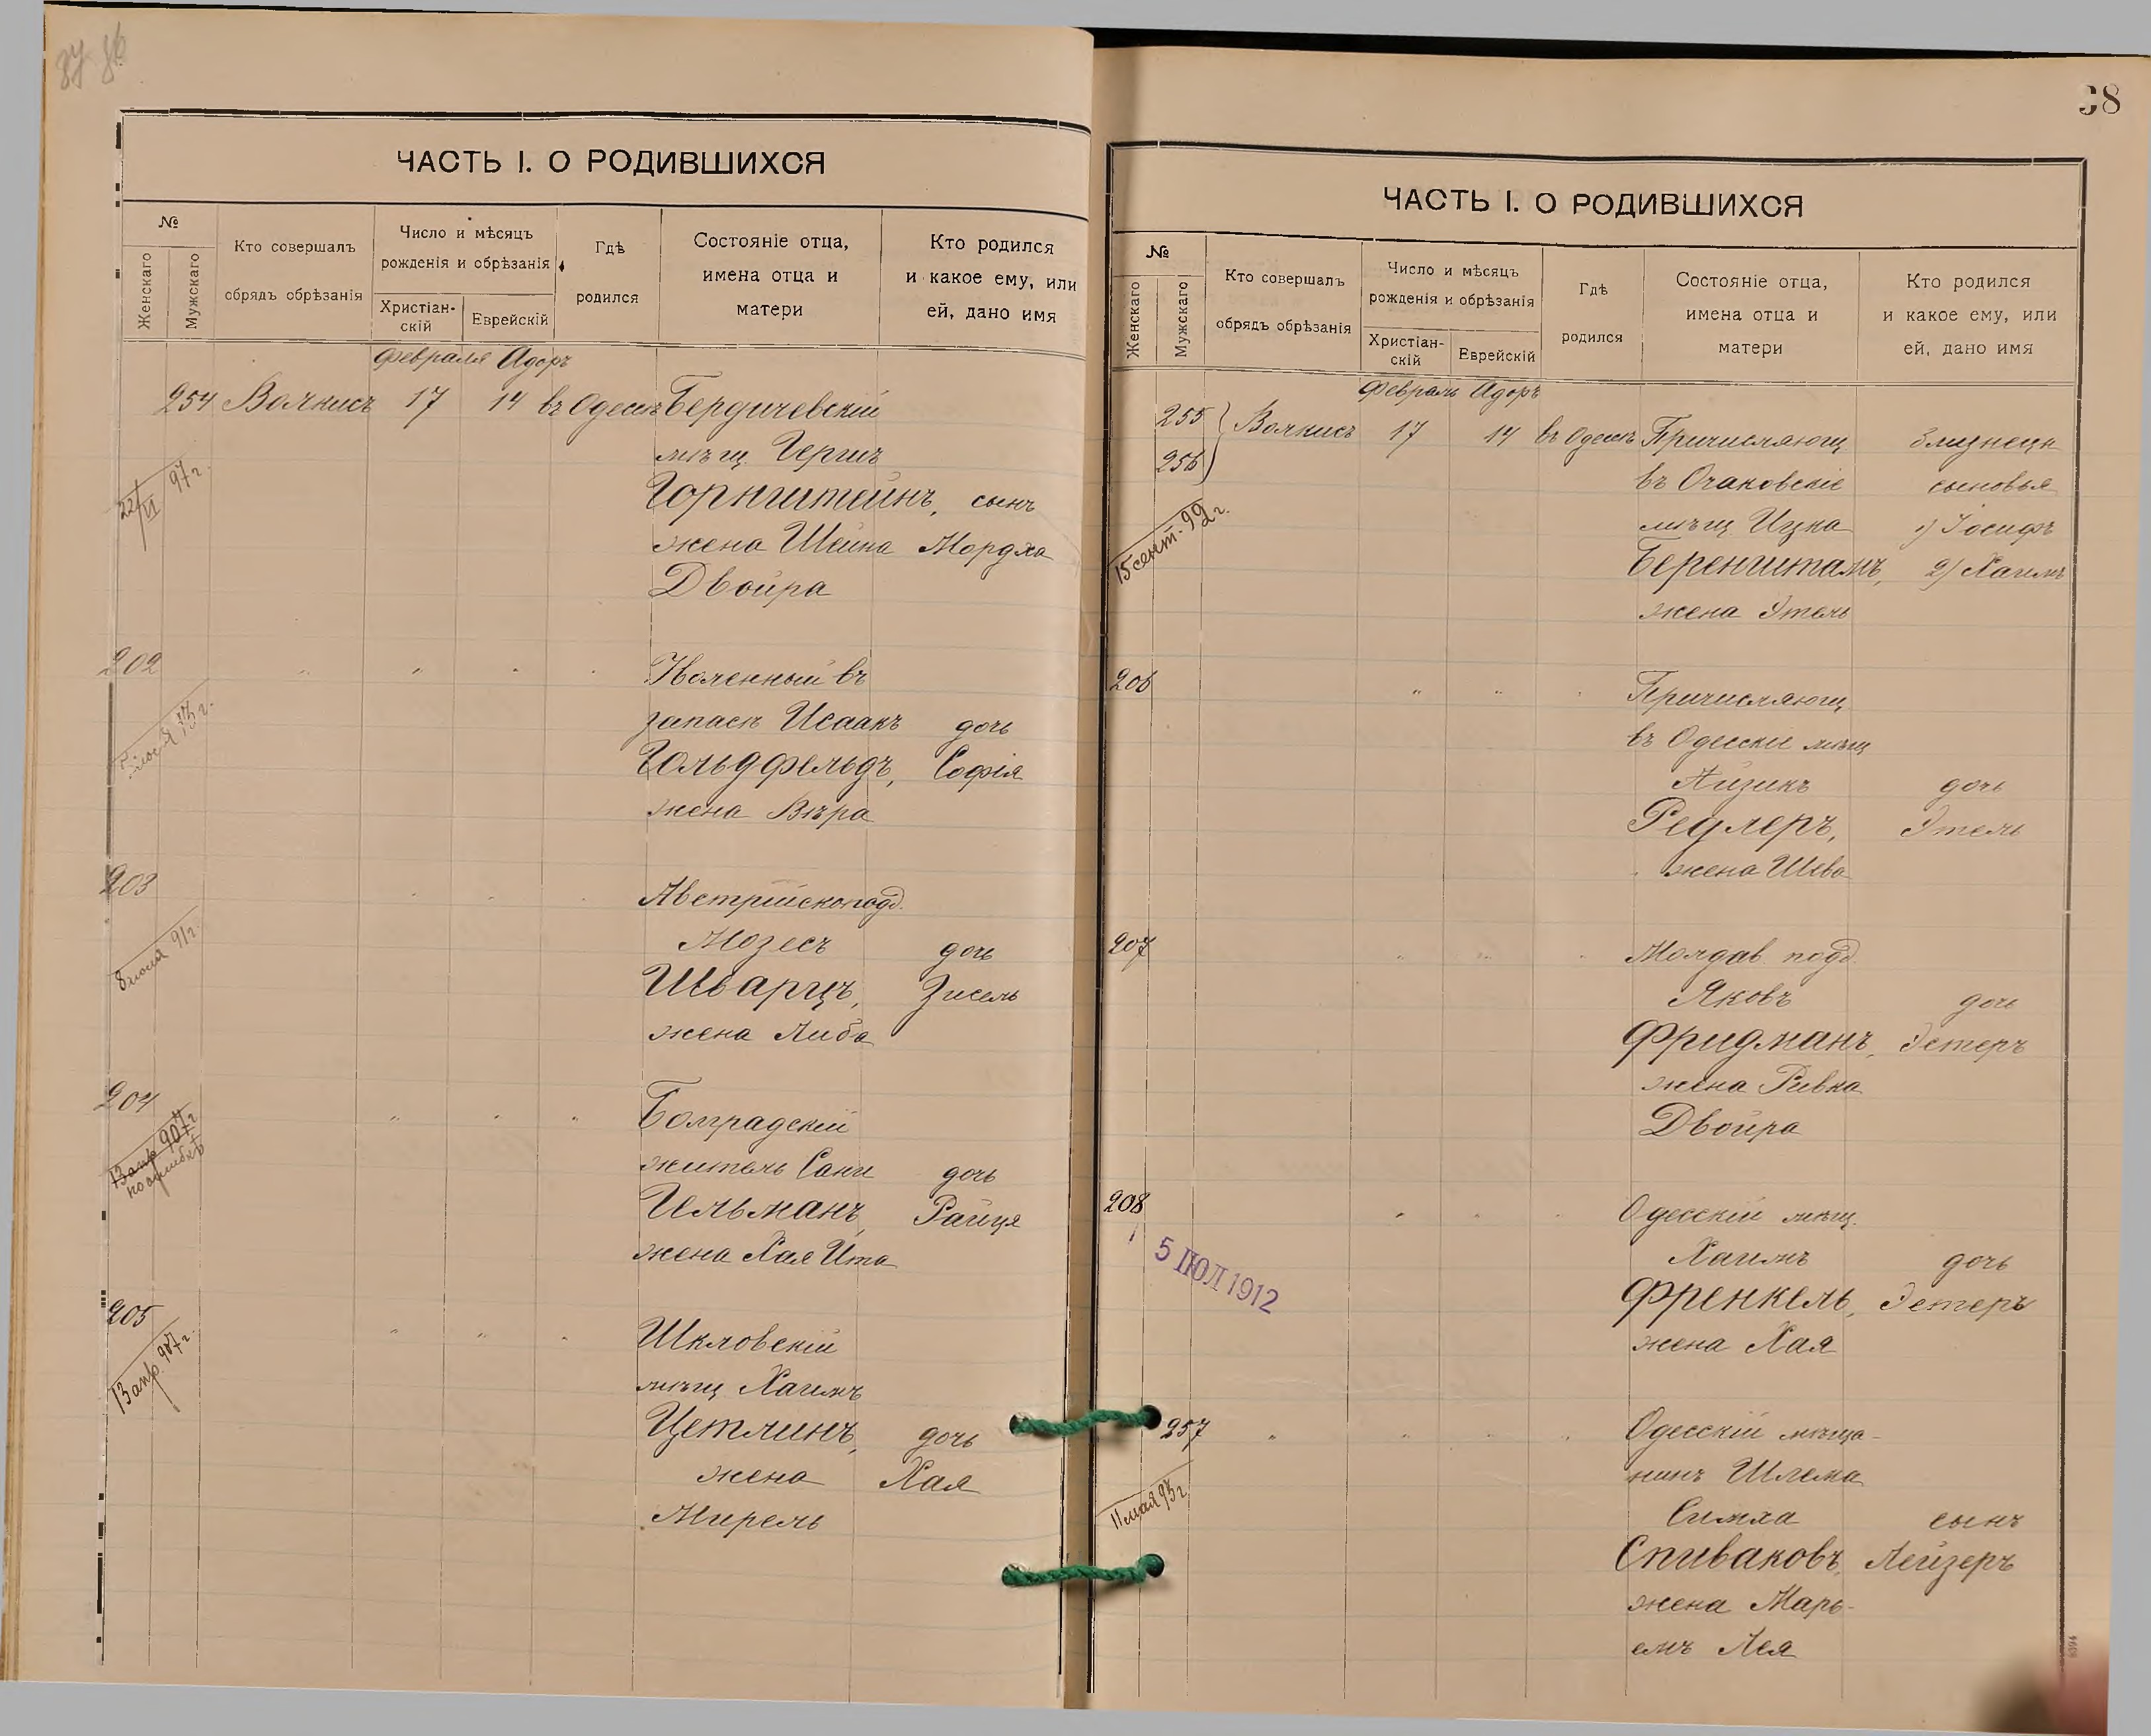 37 36
ЧАСТЬ I. О РОДИВШИХСЯ
№
Женскаго
Мужскаго
Кто совершалъ
обрядъ обрѣзанія
Число и мѣсяцъ
рожденія и обрѣзанія
Христіан-
скій
Еврейскій
Гдѣ
родился
Состояніе отца,
имена отца и
матери
Кто родился
и какое ему, или
ей, дано имя
Февраля Адоръ
254 17 14 въ Одессѣ Бердичевскій
мѣщ. Гершъ
Горнштейнъ, сынъ
жена Шейна Мордха
Двойра
22/VI 97 г.
202
въ
запасъ Исаакъ дочь
Гольдфельдъ, Софія
жена Вѣра
203
Австрійскоподд.
Мозесъ дочь
Шварцъ, Зисель
жена Либа
8 июля 91 г.
204
Болградскій
житель Сани дочь
Гельманъ, Райця
жена Хая Ита
13 апр 907 г.
по ошибкѣ
205
Шкловскій
мѣщ Хаимъ
Цетлинъ, дочь
жена Хая
Мирель
13 апр. 907 г.
38
ЧАСТЬ I. О РОДИВШИХСЯ
№
Женскаго
Мужскаго
Кто совершалъ
обрядъ обрѣзанія
Число и мѣсяцъ
рожденія и обрѣзанія
Христіан-
скій
Еврейскій
Гдѣ
родился
Состояніе отца,
имена отца и
матери
Кто родился
и какое ему, или
ей, дано имя
Февраль Адоръ
255
256
17 14 въ Одессѣ Причисляющ близнецы
въ Очаковскіе сыновья
мѣщ Ицка 1) Іосифъ
Беренштамъ, 2) Хаимъ
жена Этель
15 сент. 99 г.
206
Причисляющ
въ Одесскіе мѣщ
Айзикъ дочь
Редлеръ, Этель
жена Шева
207
Молдав. подд.
Яковъ дочь
Фридманъ, Эстеръ
жена Ривка
Двойра
208
Одесскій мѣщ.
Хаимъ дочь
Френкель, Эстеръ
жена Хая
5 ІЮЛ 1912
257
Одесскій мѣща-
нинъ Шлема
Симха сынъ
Спиваковъ, Лейзеръ
жена Марь-
емъ Лея
11 мая 93 г.